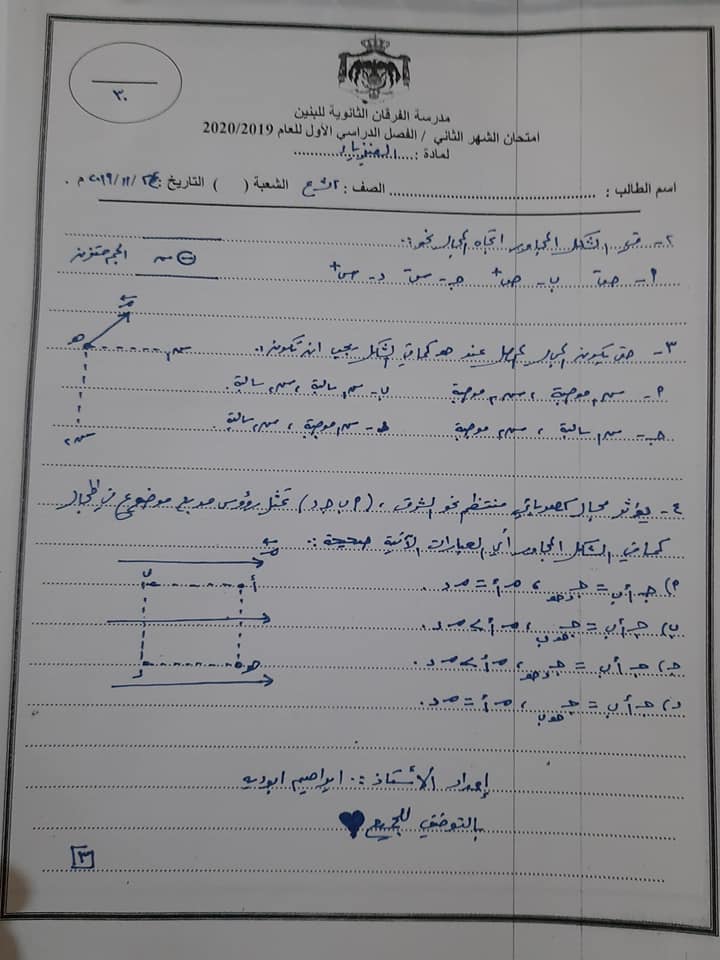 ٣٠
مدرسة الفرقان الثانوية للبنين
امتحان الشهر الثاني / الفصل الدراسي الأول للعام 2020/2019
لمادة : الفيزياء
اسم الطالب : الصف : الشعبة ( ) التاريخ : / ١١ / ٢٠١٩ م .
٢- في الشكل المجاور اتجاه المجال نحو :
الجسم متزن
س
أ- ص- ب- ص+ جـ- س- د- س+
م
هـ
٣- حتى يكون المجال المحصل عند هـ كما في الشكل يجب ان تكون :
سـ١
أ- سـ١ موجبة ، سـ٢ موجبة ب- سـ١ سالبة ، سـ٢ سالبة .
جـ- سـ١ سالبة ، سـ٢ موجبة د- سـ١ موجبة ، سـ٢ سالبة .
سـ٢
٤- يؤثر مجال كهربائي منتظم نحو الشرق ، ( أ ب جـ د ) تمثل رؤوس مربع موضوع في المجال
كما في الشكل المجاور أي العبارات الآتية صحيحة :
م
ب أ
د هـ
أ) جـ أب = ، مـ أ = مـ د .
ب) جـ أب = ، مـ أ > مـ د .
جـ) جـ أب = ، مـ أ > مـ د .
د) جـ أب = ، مـ أ = مـ د .
إعداد الأستاذ : ابراهيم ابوديه
بالتوفيق للجميع ♥
٣